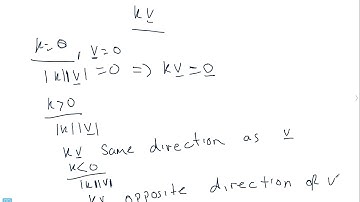 k v
k=0, v=0
|k||v|=0 => kv=0
k>0
|k||v|
kv same direction as v
k<0
|k||v|
kv opposite direction of v